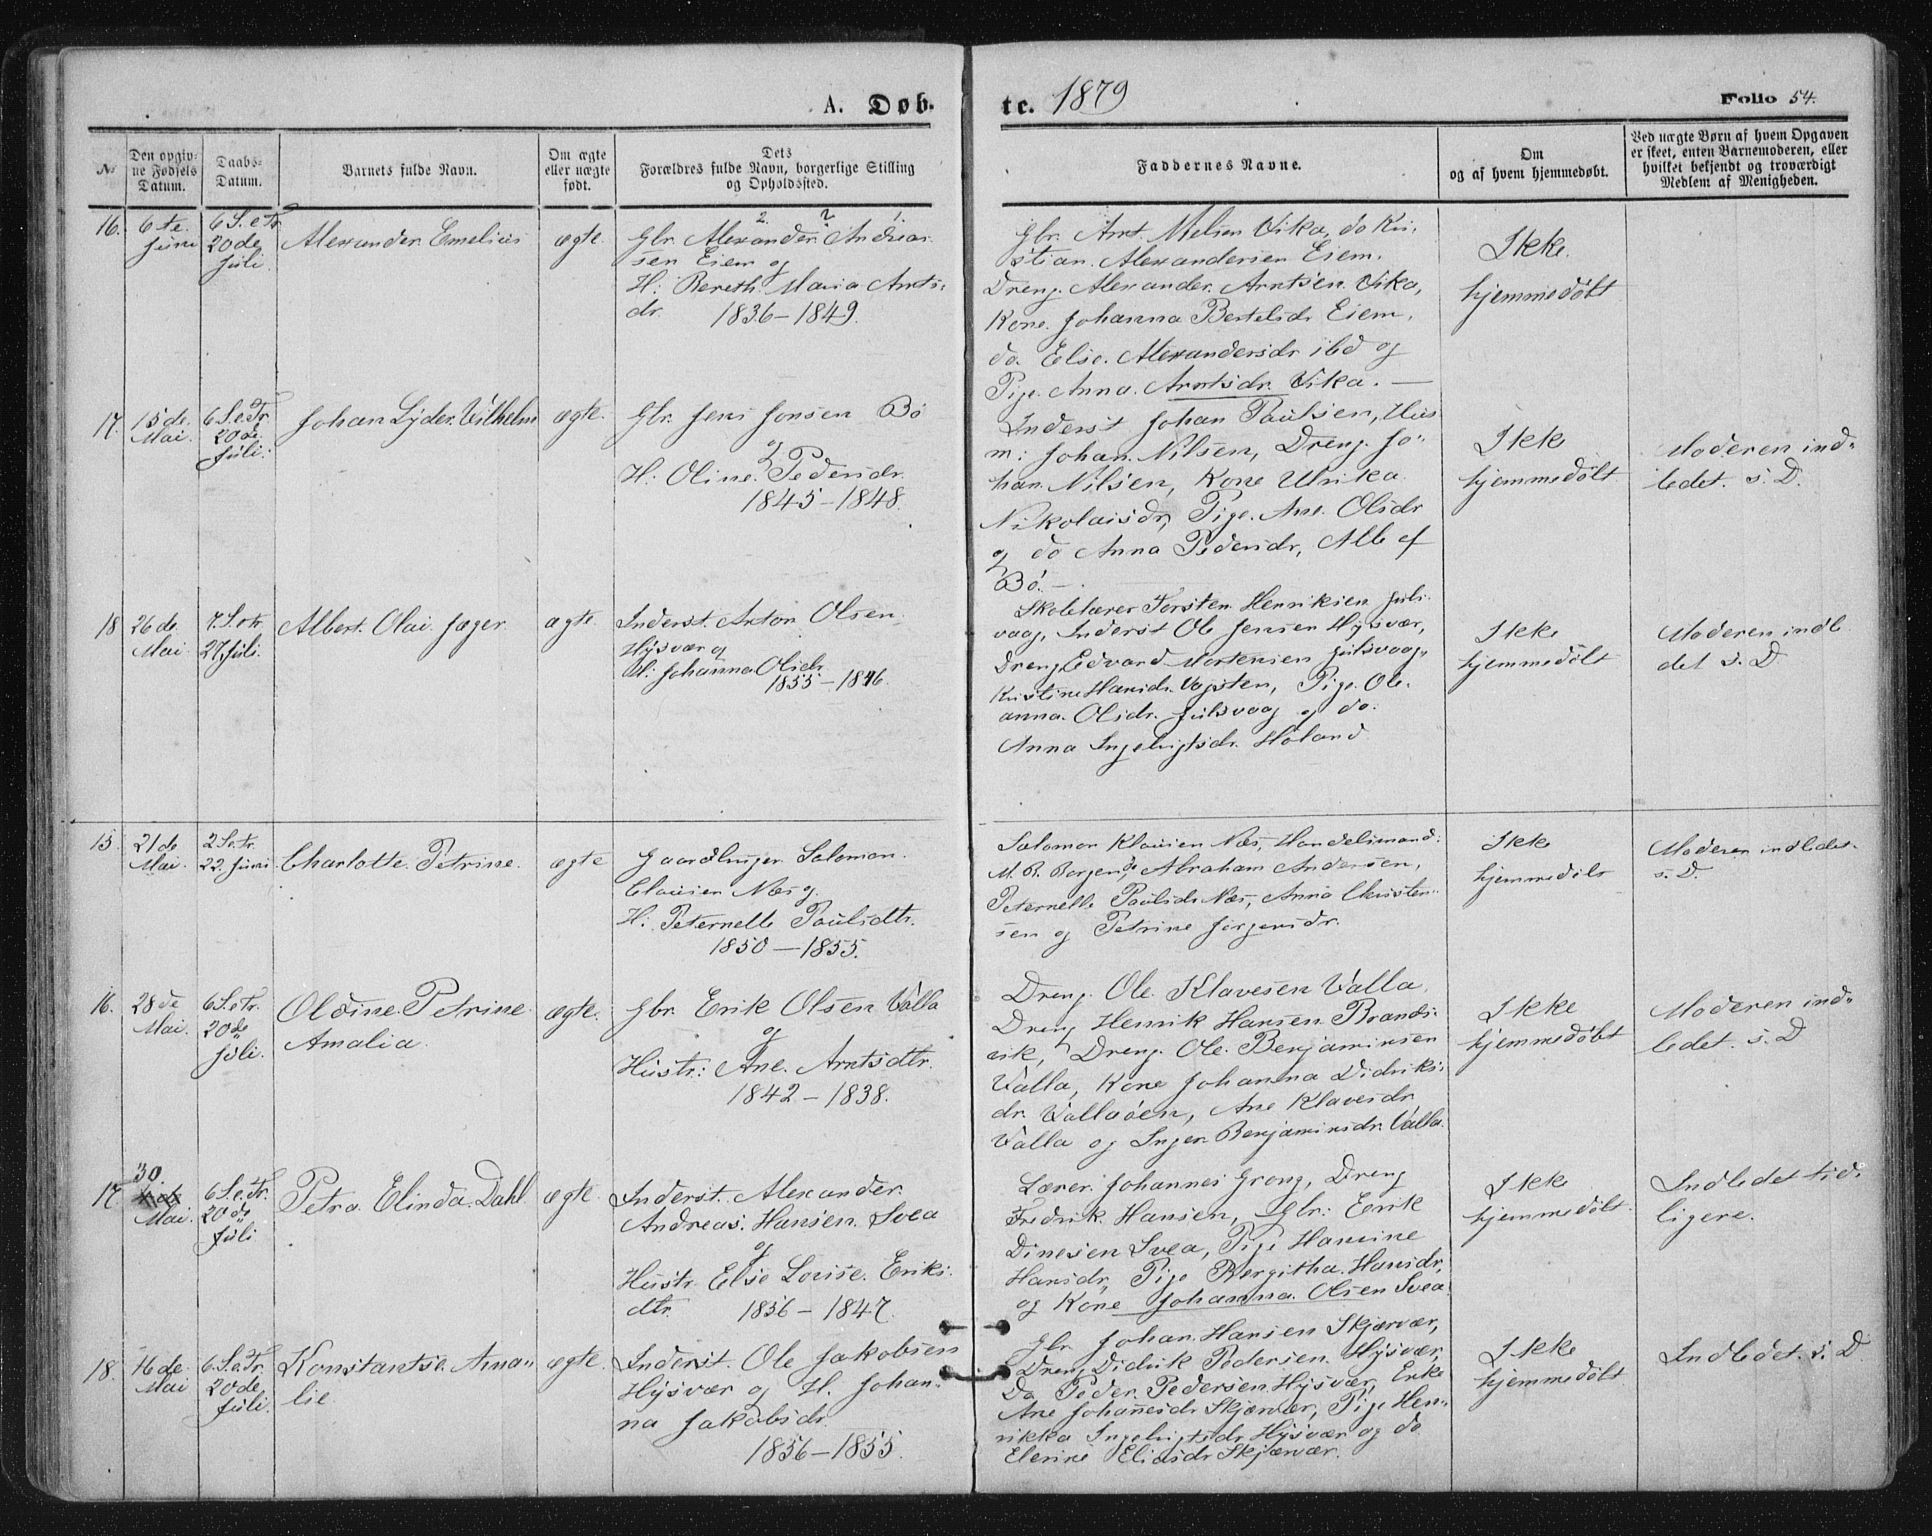 A. Døb-
te. 1879
Folio 54.
No
Den opgiv-
ne Fødsels
Datum.
Daabs-
Datum.
Barnets fulde Navn.
Om ægte
eller uægte
født.
Dets
Forældres fulde Navn, borgerlige Stilling
og Opholdssted.
Faddernes Navne.
Om
og af hvem hjemmedøbt.
Ved uægte Børn af hvem Opgaven
er skeet, enten Barnemoderen, eller
hvilket bekjendt og troværdigt
Medlem af Menigheden.
16.
6te
Juni
6 S.e.Tr.
20de
Juli.
Alexander Emelius
ægte.
Gbr. Alexander Andrias
sen Eiem og
H: Bereth Maria Arnts-
dr. 1836–1849.
Gbr. Arnt Melsen Vika, do Kri-
stian Alexandersen Eiem.
Dreng. Alexander Arntsen Vika,
Kone Johanna Bertelsdr Eiem,
do. Else Alexandersdr ibd og
Pige Anna Arntsdr Vika. —
Ikke
hjemmedøbt
17.
15de
Mai.
6 S.e.Tr.
20de
Juli.
Johan Lyder Vilhelm
ægte.
Gbr. Jens Jonsen Bö
og
H: Oline Pedersdr
1845–1848.
Inderst Johan Paulsen, Hus
m: Johan Nilsen, Dreng Jo-
han Nilsen, Kone Ulrika
Nikolaisdr, Pige Ane Olsdr
og do Anna Pedersdr, Alle af
Bö. —
Ikke
hjemmedöbt
Moderen ind-
ledet s. D.
18
26de
Mai
7. S.e.tr.
27. Juli.
Albert Olai Jæger
ægte
Inderst. Anton Olsen
Hysvær og
H: Johanna Olsdr.
1855–1846.
Skolelærer Torsten Henriksen Juls-
vaag, Inderst Ole Jensen Hysvær,
Dreng Edvard Mortensen Julsvaag,
Kristine Hansdr. Vægsten, Pige Ole-
anna Olsdr. Julsvaag og do.
Anna Ingebrigtsdr. Höland
Ikke
hjemmedöbt
Moderen indle
det s. D.
15.
21de
Mai.
2 S.e.tr.
22. Juni
Charlotte Petrine
ægte
Gaardbruger Salomon
Clausen Næs og
H: Peternelle Paulsdtr.
1850–1855.
Salomon Klausen Næs, Handelsmand:
M. B. Borgen, Abraham Andersen,
Peternelle Paulsdr Næs, Anna Christen-
sen og Petrine Jørgensdr.
Ikke
hjemmedöbt
Moderen indledet
s. D.
16.
28de
Mai.
6 S.e.tr.
20de
Juli.
Oldine Petrine
Amalia.
ægte.
Gbr. Erik Olsen Valla
og
Hustr: Ane Arntsdtr.
1842–1838.
Dreng. Ole Klavesen Valla,
Dreng Henrik Hansen Brands-
vik, Dreng. Ole Benjaminsen
Valla, Kone Johanna Didriks-
dr. Vallaöen, Ane Klavesdr
Valla og Inger Benjaminsdr. Valla.
Ikke
hjemmedøbt
Moderen ind-
ledet. s. D
17.
30.
Mai.
6 S.e.Tr.
20de
Juli
Petra Elinda Dahl
ægte
Inderst. Alexander
Andreas Hansen Svea
og
Hustr. Else Lovise Eriks-
dtr. 1856–1847.
Lærer Johannes Grong, Dreng
Fredrik Hansen, Gbr: Erik
Dinesen Svea, Pige Hansine
Hansdr, Pige Bergitha Hansdr,
og Kone Johanna Olsen Svea.
Ikke
hjemmedöbt
Indledet tid-
ligere.
18.
16de
Mai
6. S.e.Tr
20de
Juli.
Konstantse Ama-
lie
ægte.
Inderst. Ole Jakobsen
Hysvær og H. Johan-
na Jakobsdr
1856–1855.
Gbr Johan Hansen Skjærvær,
Dreng Didrik Pedersen Hysvær,
Do Peder Pedersen Hysvær, Enke
Ane Johannesdr Skjærvær, Pige Hen-
rikka Ingebrigtsdr Hysvær og do
Elerine Eliasdr Skjærvær.
Ikke
hjemmedöbt
Indledet s. D